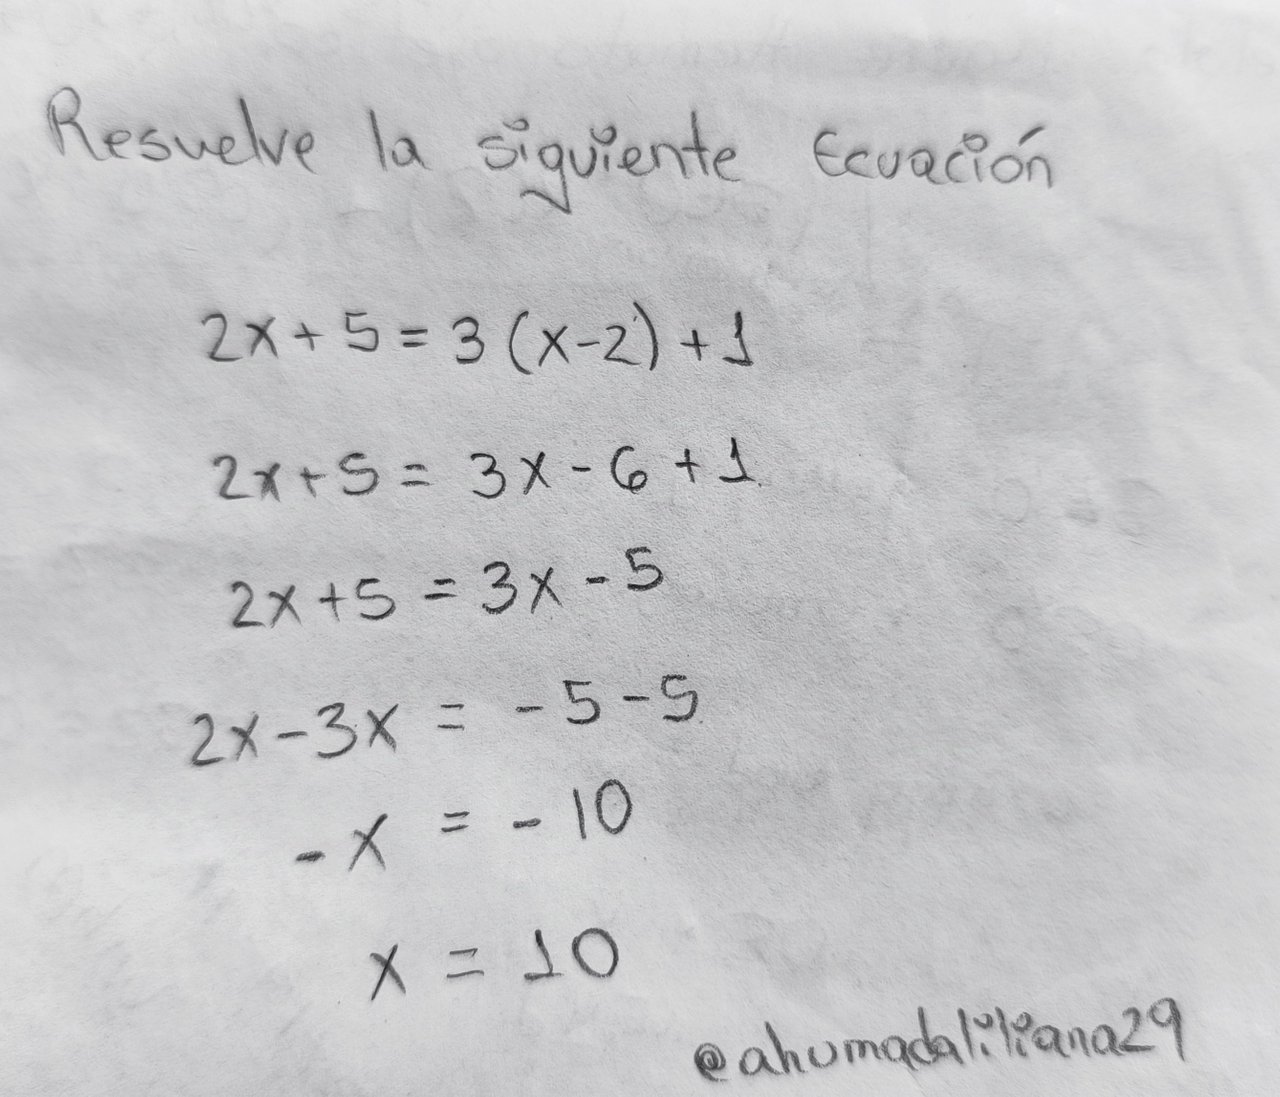 Resuelve la siguiente Ecuación
2x + 5 = 3 (x-2) + 1
2x + 5 = 3x - 6 + 1
2x + 5 = 3x - 5
2x - 3x = - 5 - 5
- x = - 10
x = 10
@ahumadaliliana29